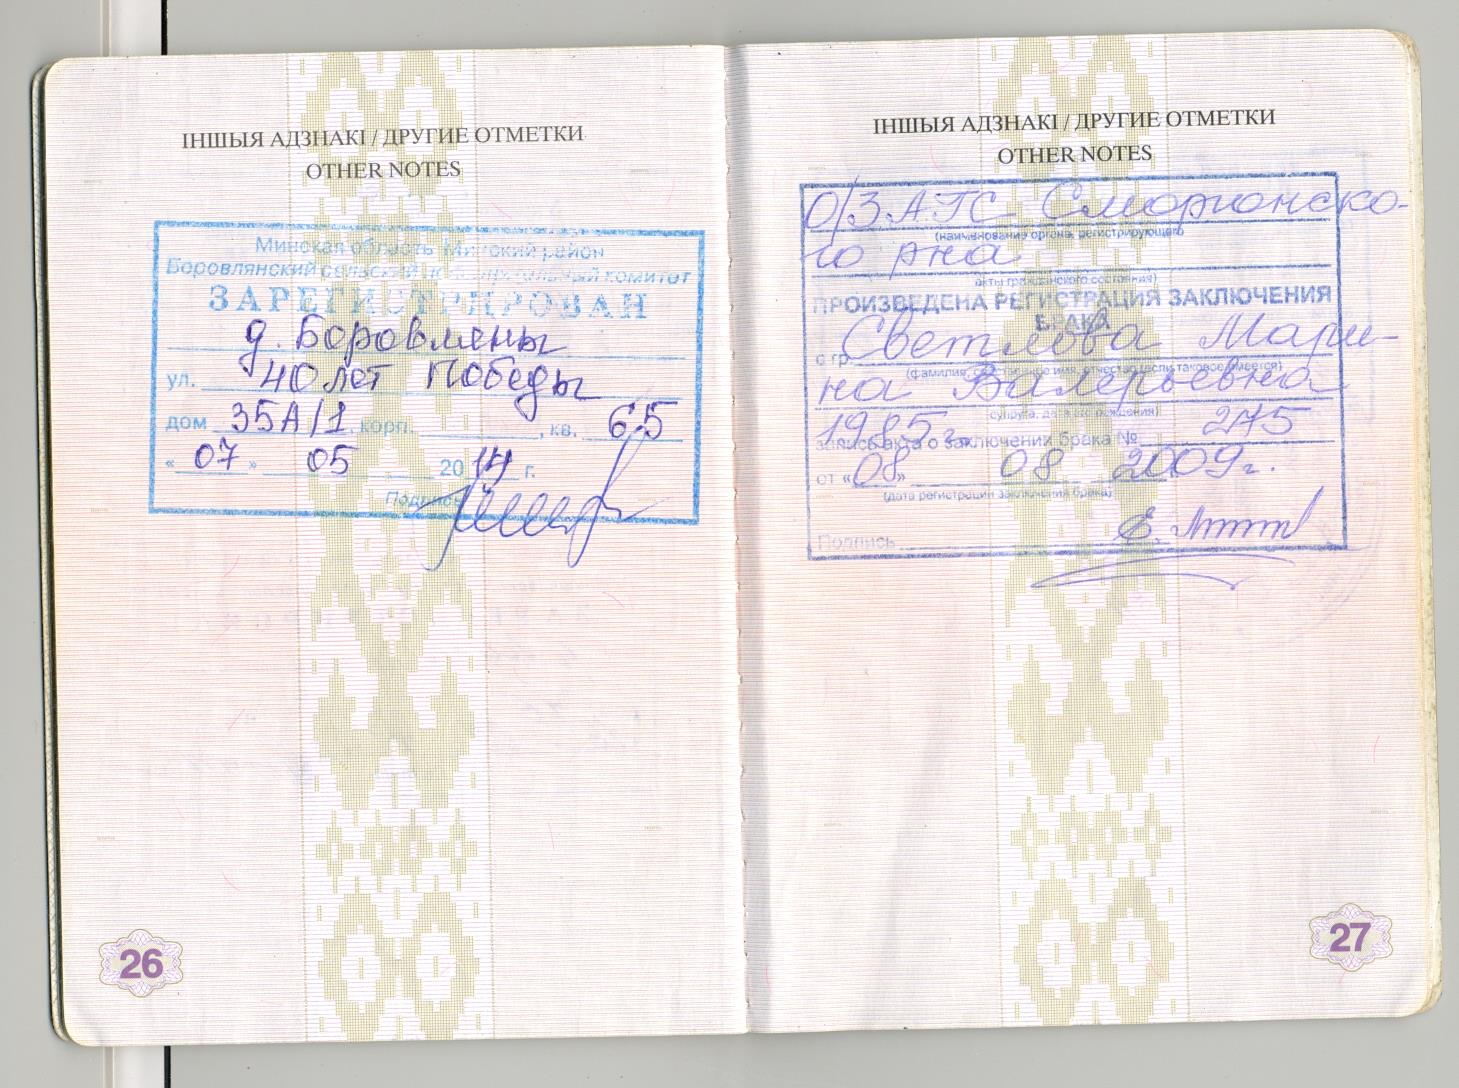 ІНШЫЯ АДЗНАКІ / ДРУГИЕ ОТМЕТКИ
OTHER NOTES
Минская область Минский район
Боровлянский сельский исполнительный комитет
ЗАРЕГИСТРИРОВАН
д. Боровляны
ул. 40 лет Победы
дом 35А/1, корп. , кв. 65
«07» 05 2014 г.
Подпись
26
ІНШЫЯ АДЗНАКІ / ДРУГИЕ ОТМЕТКИ
OTHER NOTES
О/ЗАГС Сморгонско-
(наименование органа, регистрирующего
го р-на
акты гражданского состояния)
ПРОИЗВЕДЕНА РЕГИСТРАЦИЯ ЗАКЛЮЧЕНИЯ
БРАКА
с гр. Светлова Мари-
(фамилия, собственное имя, отчество (если таковое имеется)
на Валерьевна
супруга, дата его рождения)
1985 г.
запись акта о заключении брака № 275
от «08» 08 2009 г.
(дата регистрации заключения брака)
Подпись
27